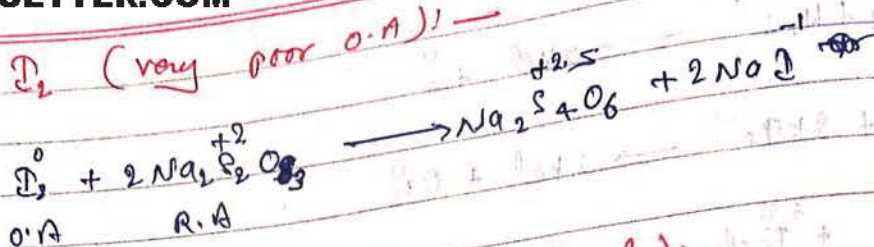 I₂ (very poor O.A):—
0 +2 +2.5 -1
I₂ + 2Na₂S₂O₃ ⟶ Na₂S₄O₆ + 2NaI
O.A R.A